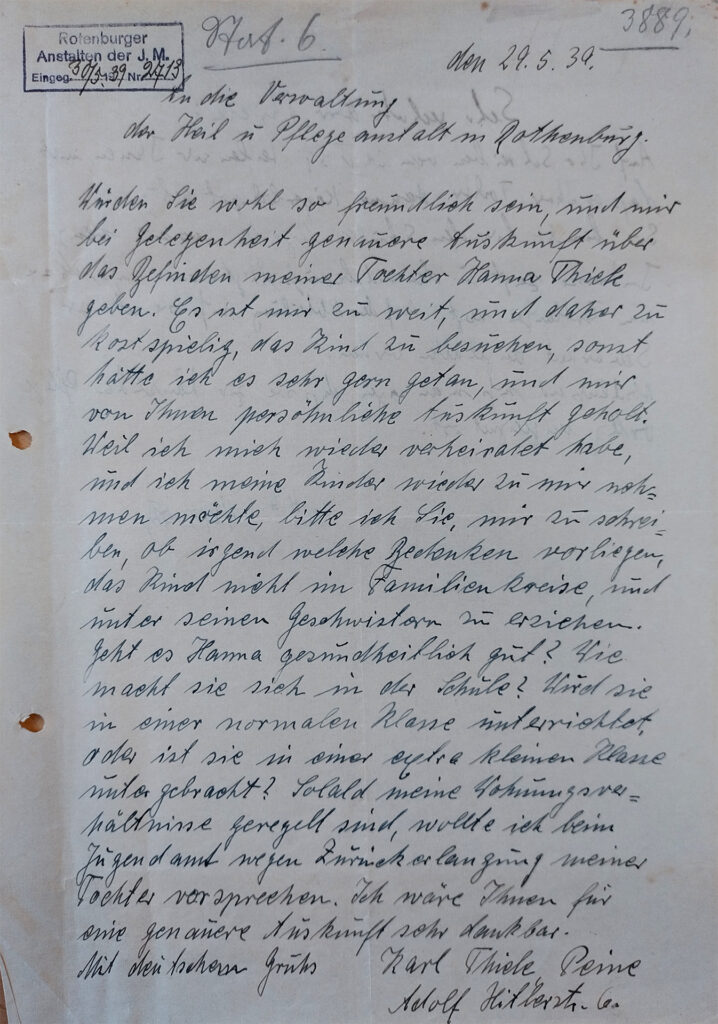 Stat. 6.
3889.
Rotenburger
Anstalten der J. M.
Eingeg. 30/5. 39 Nr. 2713
den 29. 5. 39.
An die Verwaltung
der Heil u Pflegeanstalt in Rothenburg.
Würden Sie wohl so freundlich sein, und mir
bei Gelegenheit genauere Auskunft über
das Befinden meiner Tochter Hanna Thiele
geben. Es ist mir zu weit, und daher zu
kostspielig, das Kind zu besuchen, sonst
hätte ich es sehr gern getan, und mir
von Ihnen persöhnliche Auskunft geholt.
Weil ich mich wieder verheiratet habe,
und ich meine Kinder wieder zu mir neh=
men möchte, bitte ich Sie, mir zu schrei=
ben, ob irgend welche Bedenken vorliegen,
das Kind nicht im Familienkreise, und
unter seinen Geschwistern zu erziehen.
Geht es Hanna gesundheitlich gut? Wie
macht sie sich in der Schule? Wird sie
in einer normalen Klasse unterrichtet,
oder ist sie in einer extra kleinen Klasse
untergebracht? Solald meine Wohnungsver=
hältnisse geregelt sind, wollte ich beim
Jugendamt wegen Zurückerlangung meiner
Tochter vorsprechen. Ich wäre Ihnen für
eine genauere Auskunft sehr dankbar.
Mit deutschem Gruhs Karl Thiele, Peine
Adolf Hitlerstr. 6.